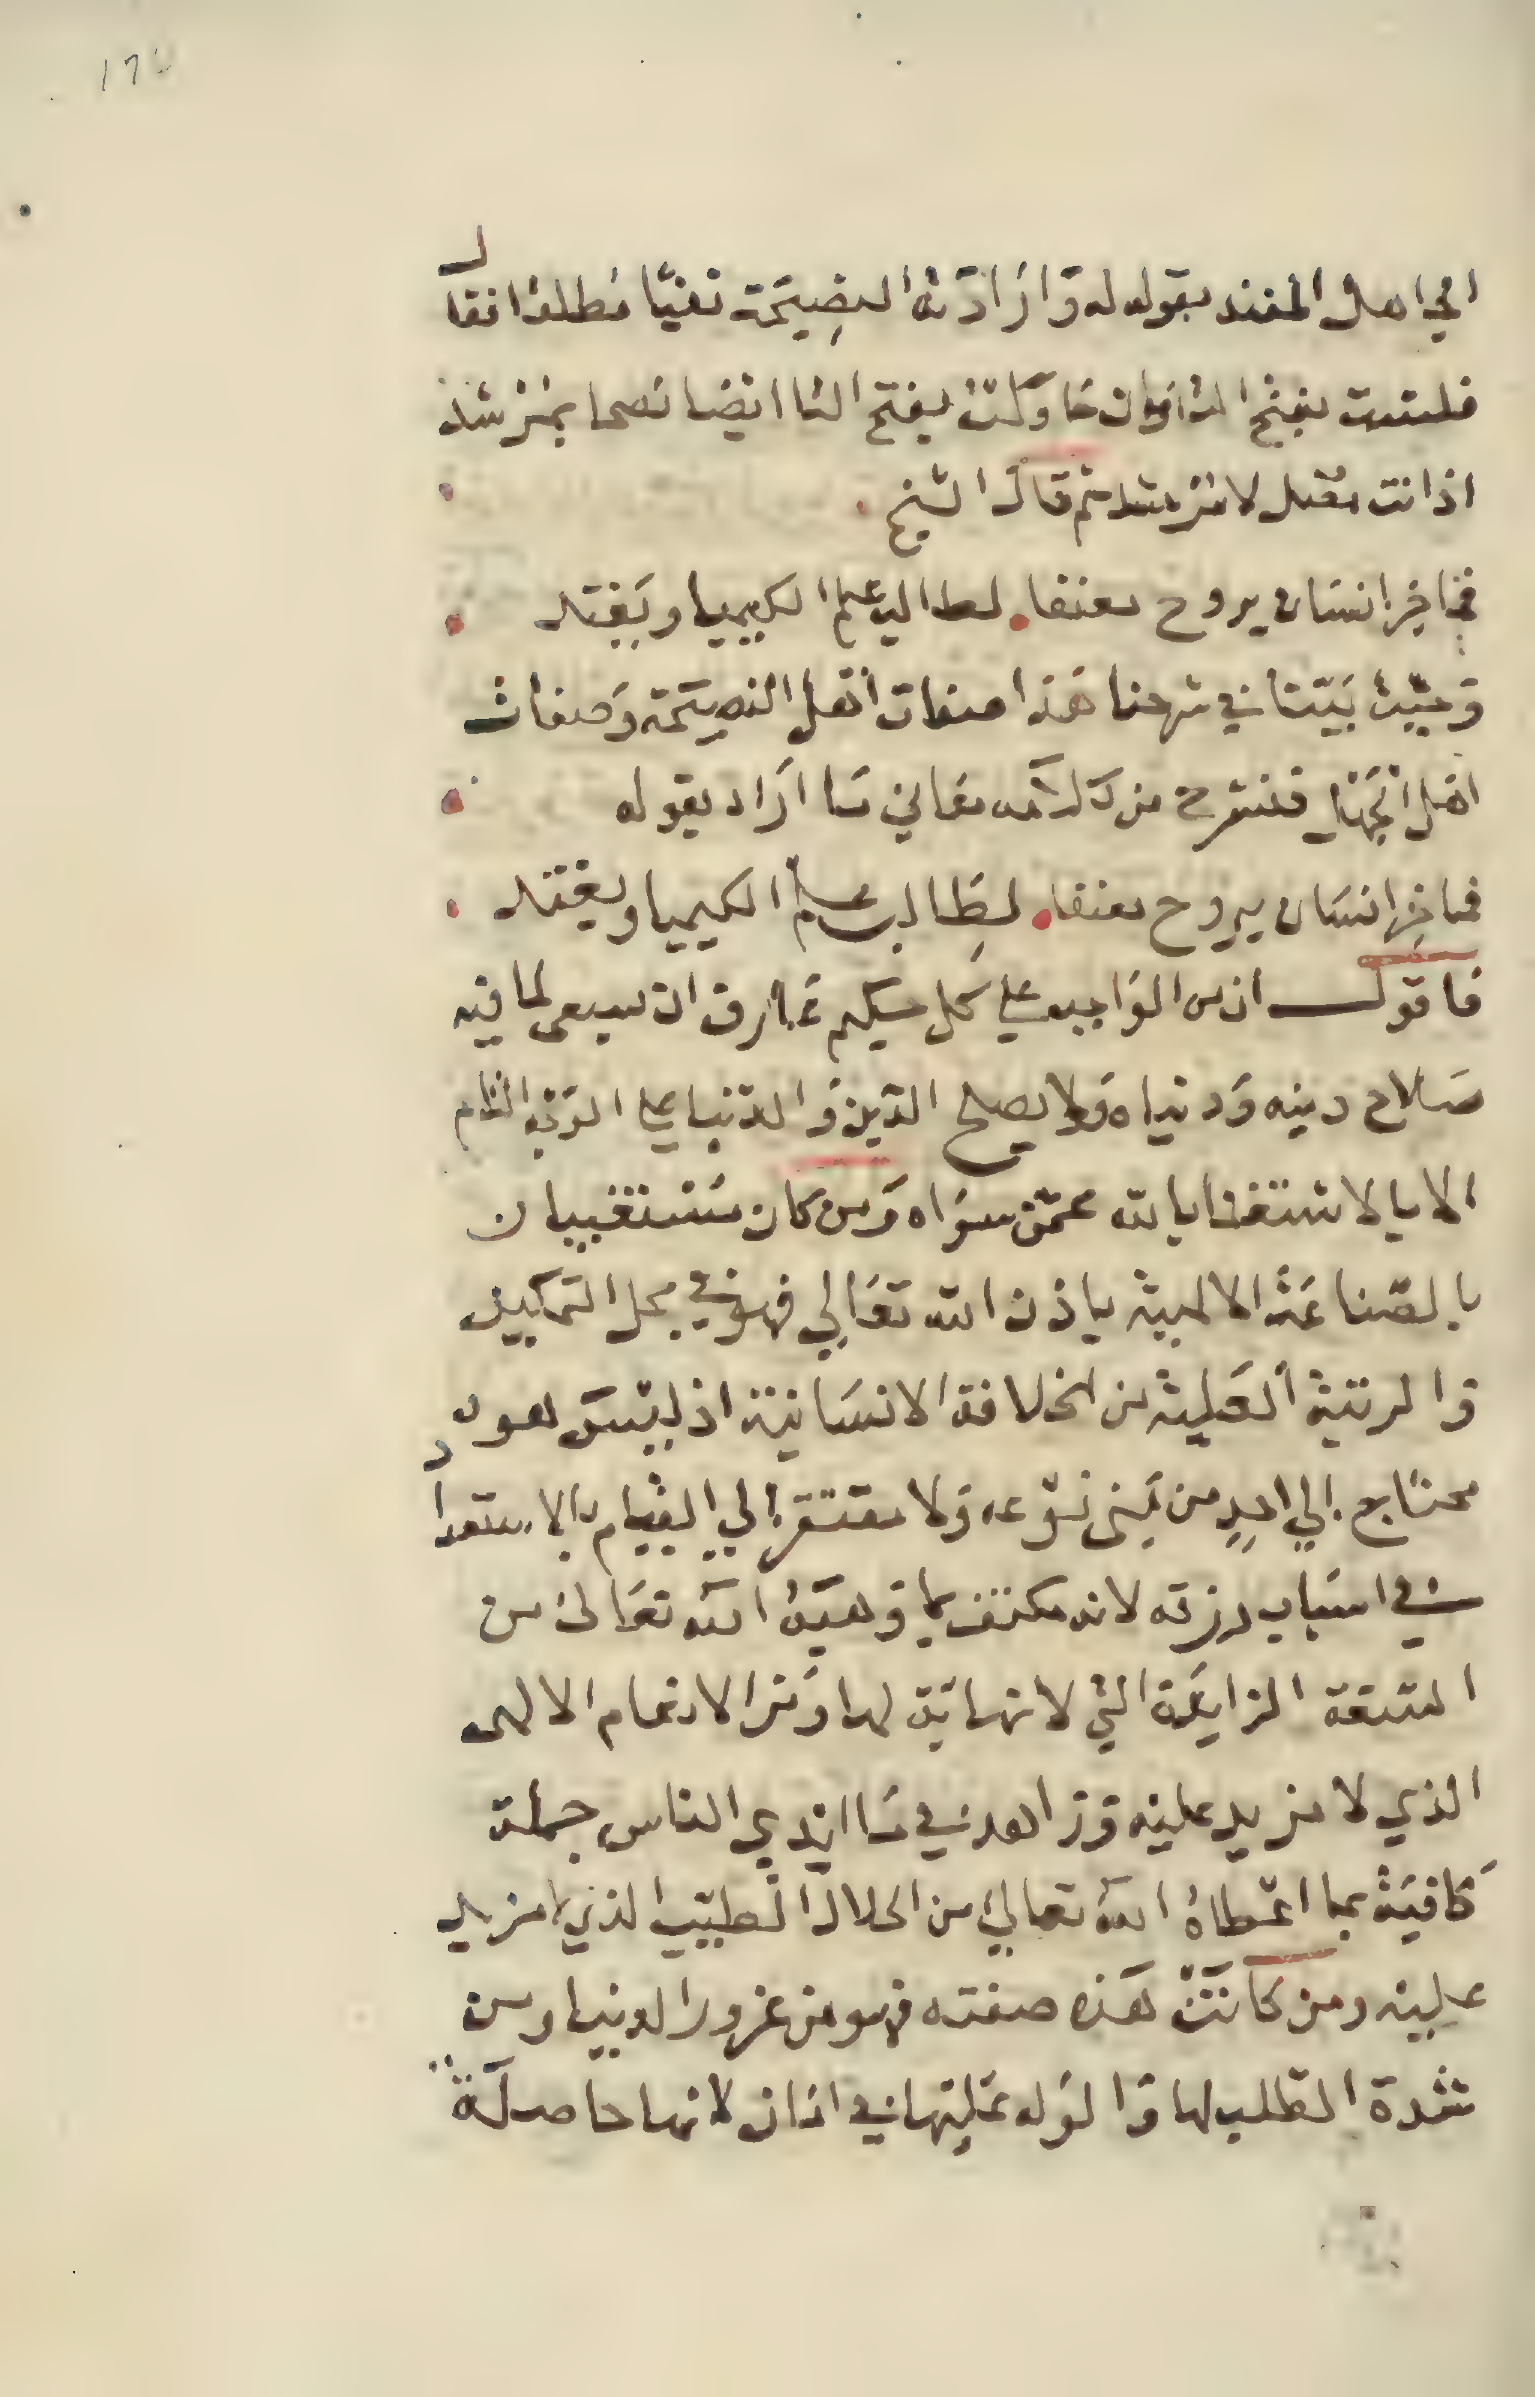 ١٦٧
الي اهل المفند بقوله له وارادته النصيحة نفيا مطلقا فقال
فلست بفتح التا وان حاولت بفتح التا ايضا نصحا بمرشد
اذا انت مقبل لا مرشد ثم قال الشيخ
فما خير انسان يروح معنفا لطالب علم الكيميا ويغتد
وحيث بينا في شرحنا هذا صفات اهل النصيحة وصفات
اهل الجهل فنشرح من كلامه معاني ما اراد بقوله
فما خير انسان يروح معنفا لطالب علم الكيميا ويغتد
فاقول ان من الواجب علي كل حكيم عارف ان يسعى لما فيه
صلاح دينه ودنياه ولا يصلح الدين والدنيا على الوجه التام
الا بالاستغنا بالله عمن سواه ومن كان مستغنيا
بالصناعة الالهية باذن الله تعالي فهو في محل التمكين
والرتبة العلية من الخلافة الانسانية اذ ليس هو
محتاج الي احد من بني نوعه ولا مفتقر الي القيام بالاستعداد
في اسباب رزقه لانه مكتف بما وهبه الله تعالى من
النعمة الزايدة التي لا نهاية لها ومن الانعام الالهى
الذي لا مزيد عليه وزاهد في ما ايدي الناس جملة
كافية بما اعطاه الله تعالي من الحلال الطيب الذي لا مزيد
عليه ومن كانت هذه صفته فهو من غرور الدنيا ومن
شدة الطلب لها والوله عليها في امان لانها حاصلة